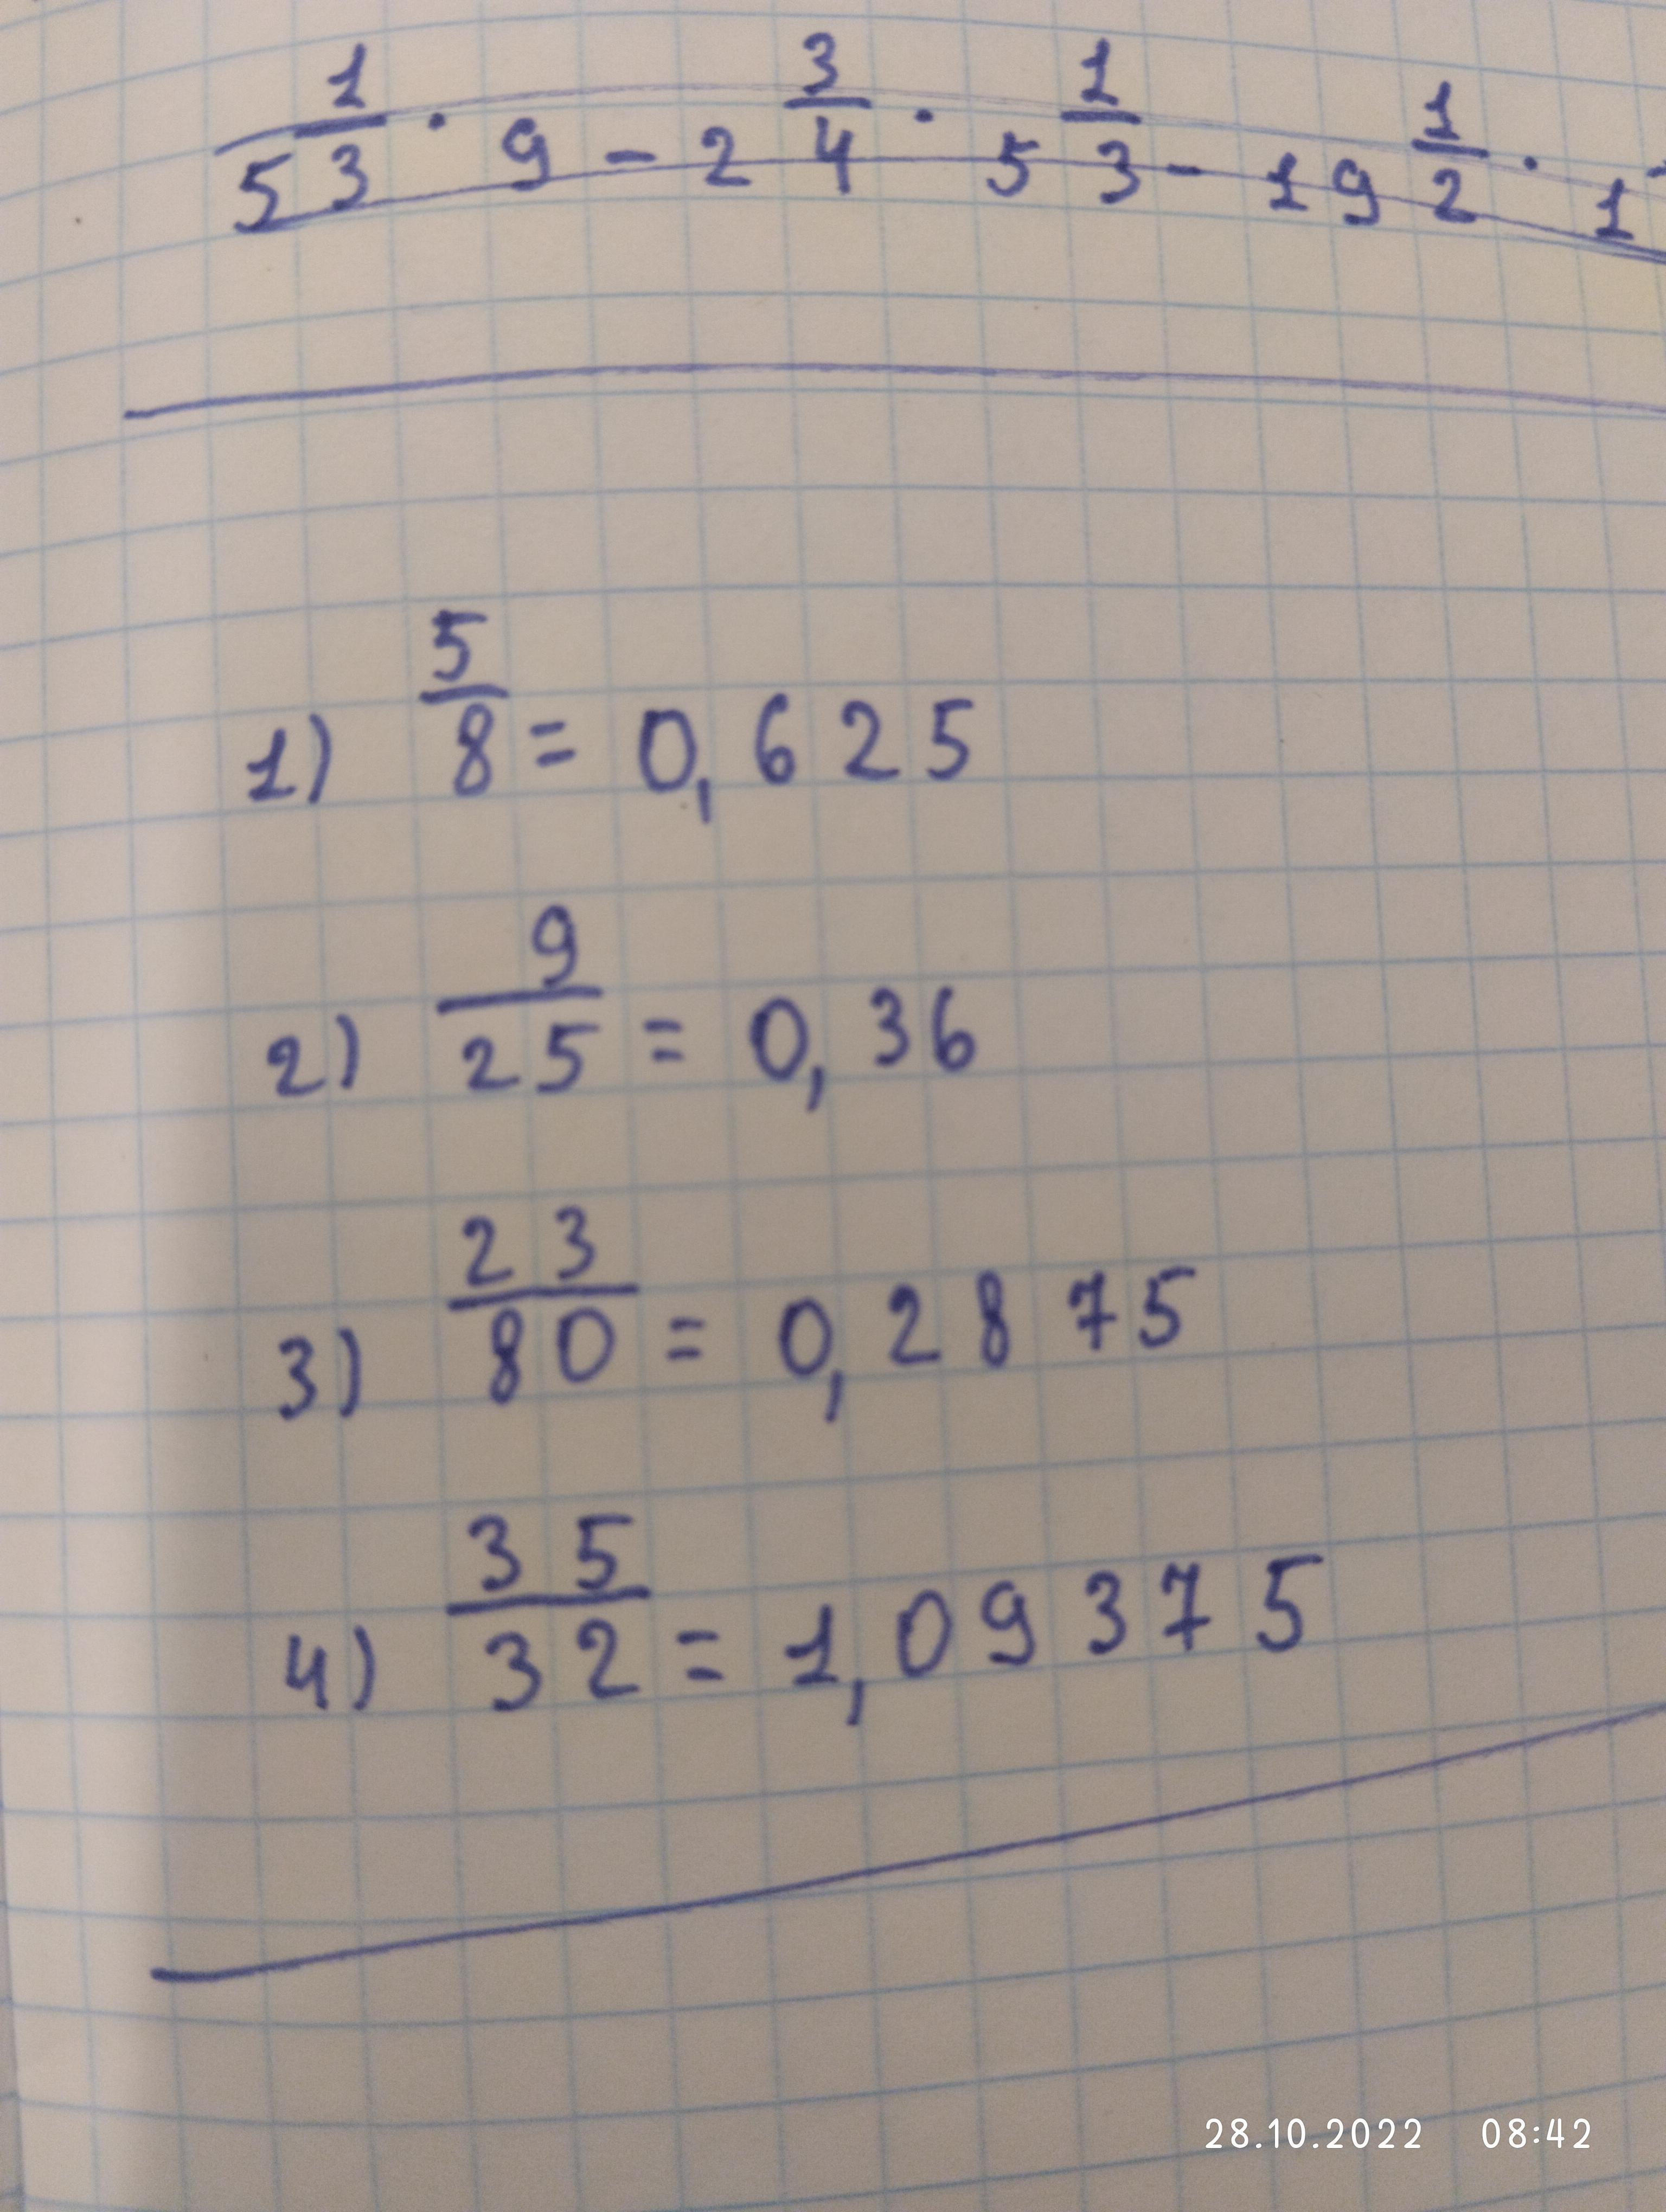 5 1/3 · 9 - 2 3/4 · 5 1/3 - 19 1/2 · 1
1) 5/8 = 0,625
2) 9/25 = 0,36
3) 23/80 = 0,2875
4) 35/32 = 1,09375
28.10.2022 08:42